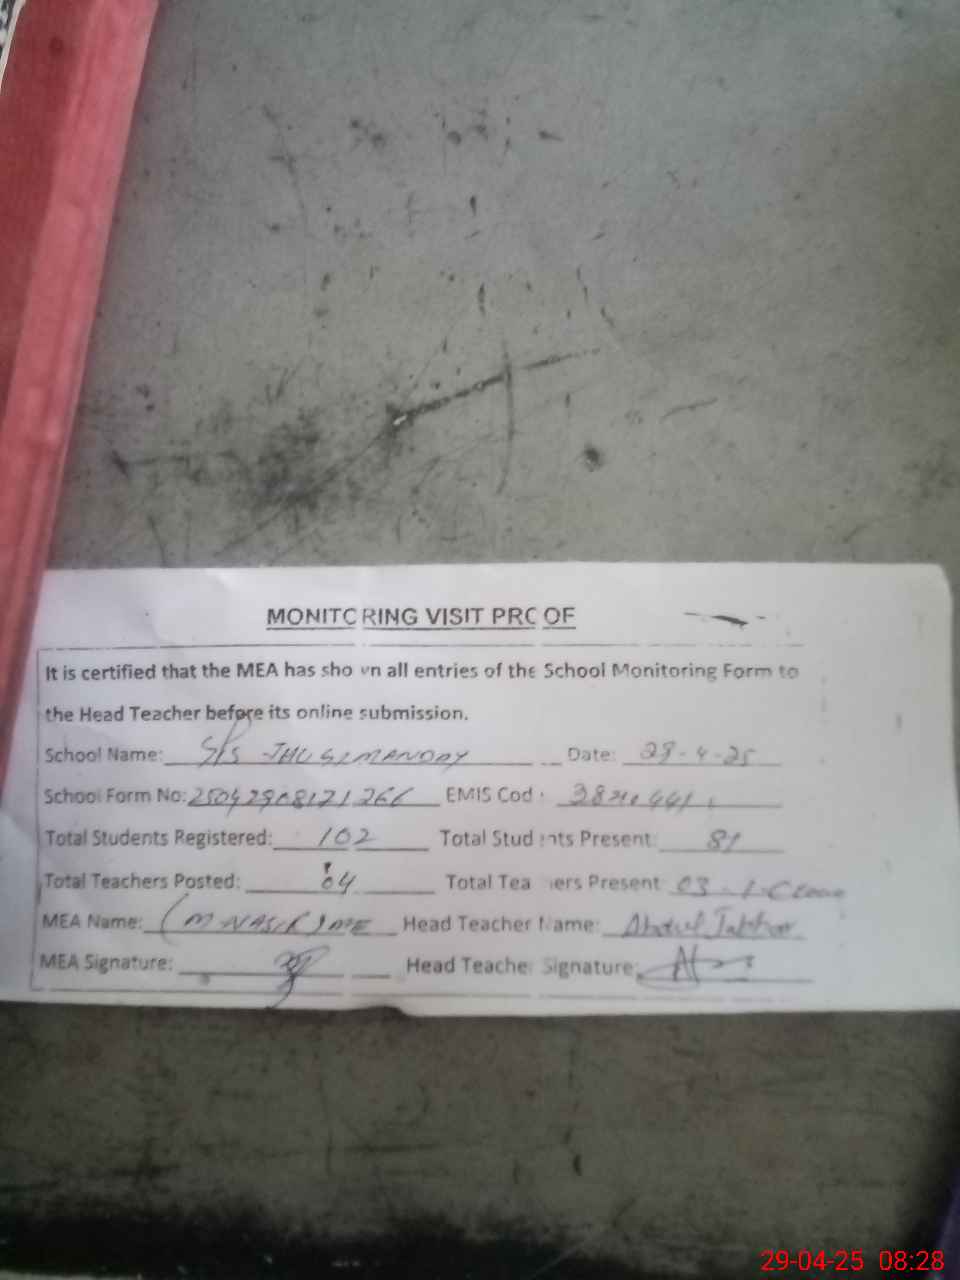 MONITORING VISIT PROOF
It is certified that the MEA has shown all entries of the School Monitoring Form to
the Head Teacher before its online submission.
School Name: Date: 29-4-25
School Form No: EMIS Cod
Total Students Registered: 102 Total Students Present: 81
Total Teachers Posted: 04 Total Teachers Present 03
MEA Name: Head Teacher Name: Abdul Jabbar
MEA Signature: Head Teacher Signature:
29-04-25 08:28